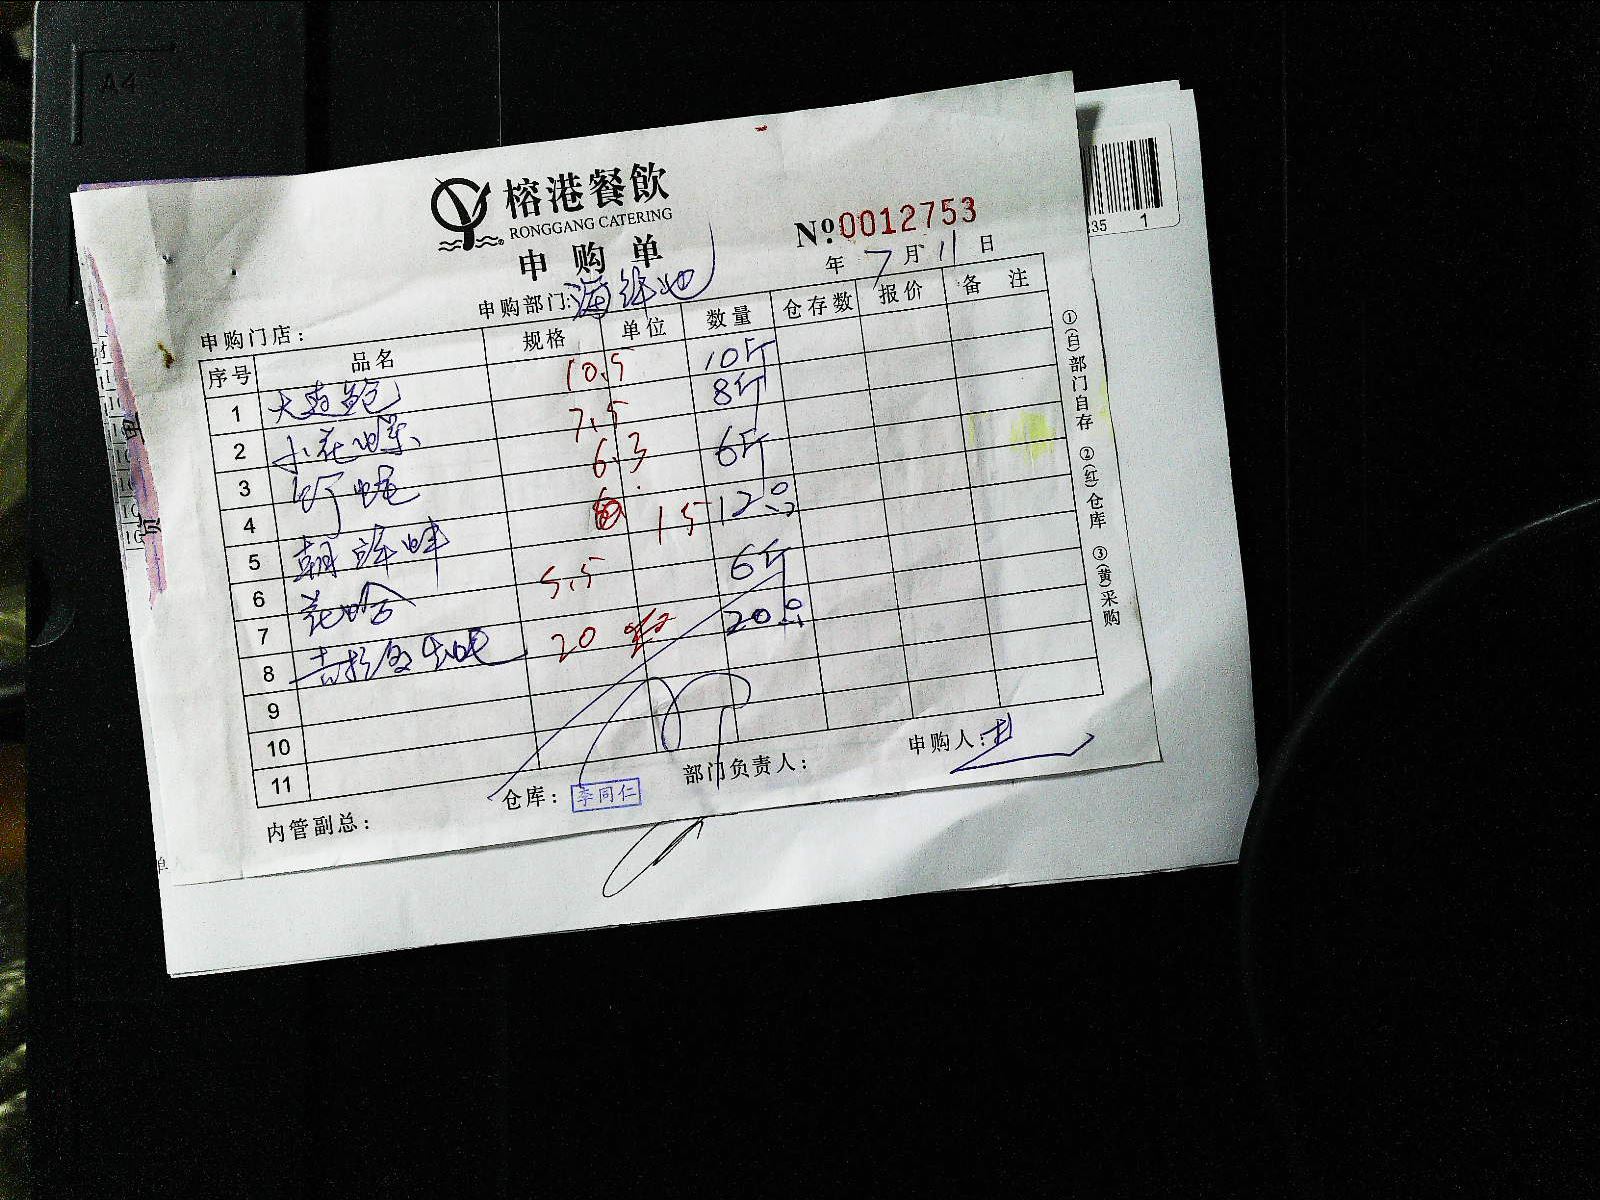 A4
榕港餐飲
RONGGANG CATERING
申购单
№:0012753
年 7 月 11 日
申购部门:海鲜池
申购门店:
序号 品名 规格 单位 数量 仓存数 报价 备注
1 大连鲍 10.5 10斤
2 小花螺 7.5 8斤
3 6.3 6斤
4 15 12只
5
6 花蛤 5.5 6斤
7
8 20 20只
9
10
11
内管副总:
仓库: 李同仁
部门负责人:
申购人:
①(白)部门自存 ②(红)仓库 ③(黄)采购
35 1